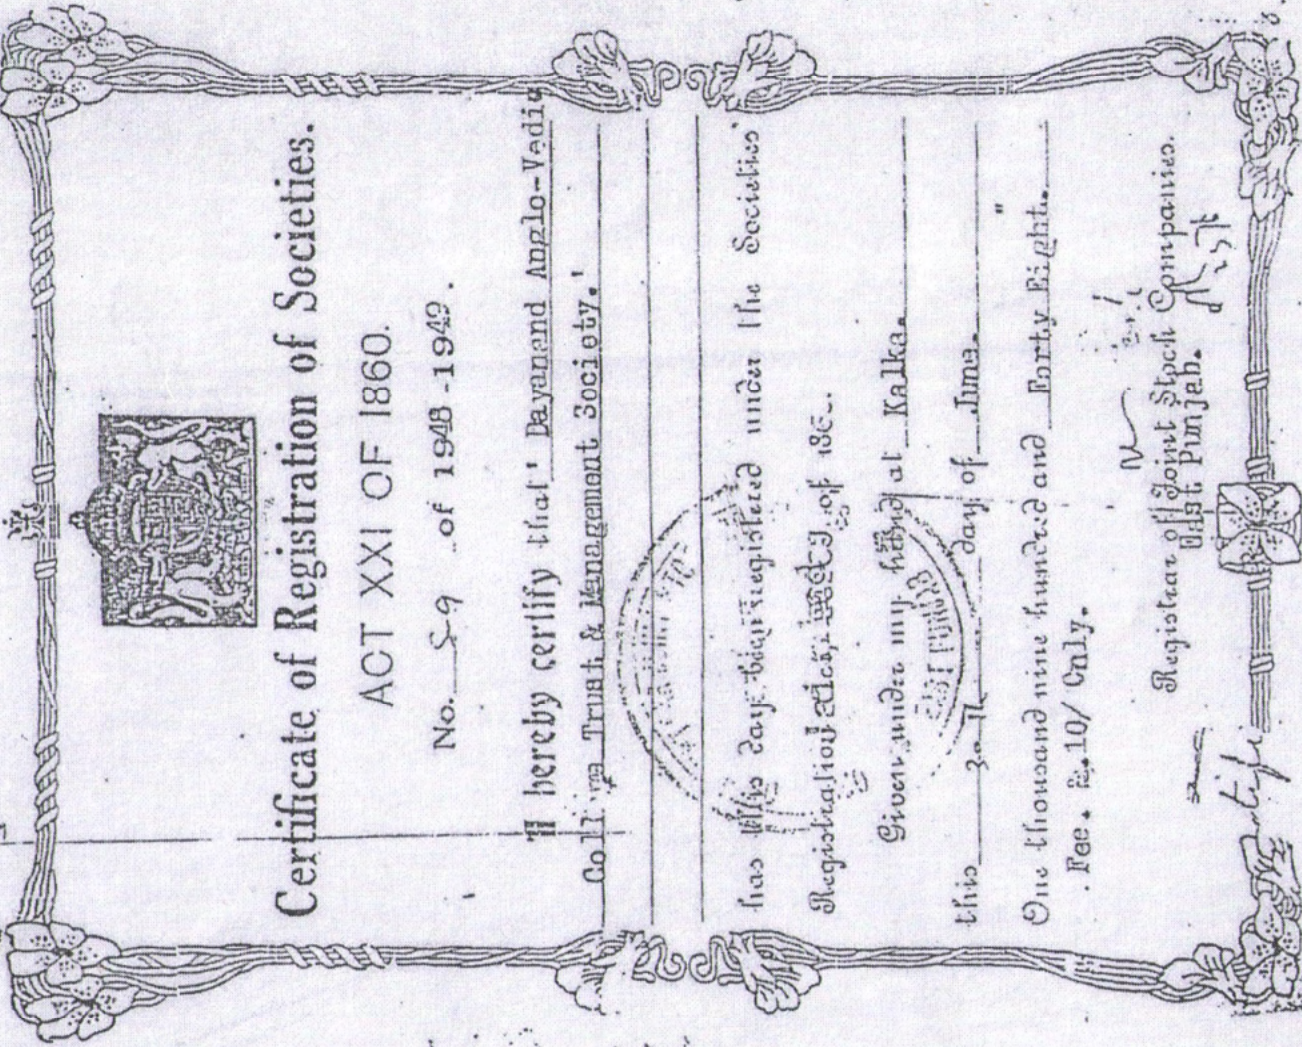 Certificate of Registration of Societies.
ACT XXI OF 1860.
No. 59 of 1948-1949.
I hereby certify that ' Dayanand Anglo-Vedic
College Trust & Management Society.'
has this day been registered under the Societies'
Registration Act, of 186
Given under my hand at Kalka.
this day of June.
One thousand nine hundred and Forty Eight.
Fee. 10/ Only.
Registrar of Joint Stock Companies.
East Punjab.